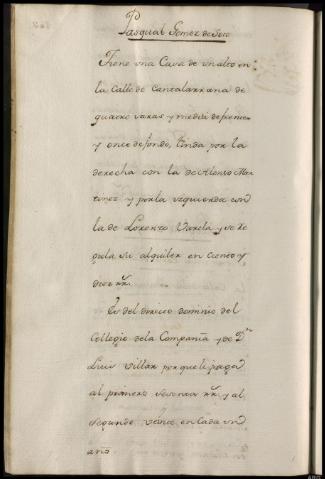 Pasqual Gomez de Soto
Tiene una Casa de un alto en
la Calle de Cantalarrana de
quatro varas y media de frente
y once de fondo, linda por la
derecha con la de Alonso Mar
tinez y por la izquierda con
la de Lorenzo Varela y se re
gula su alquiler en ciento y
diez rr.
Es del directo dominio del
Collegio de la Compañia y de Dn
Luis Villar por que le paga
al primero sesenta rr. y al
segundo veinte en cada un
año